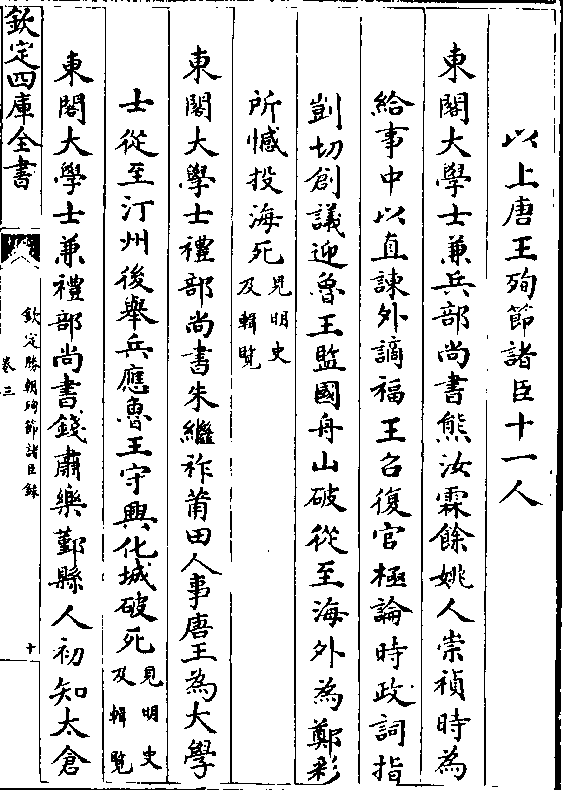 以上唐王殉節諸臣十一人
東閣大學士兼兵部尚書熊汝霖餘姚人崇禎時為
給事中以直諫外謫福王召復官極論時政詞指
剴切創議迎魯王監國舟山破從至海外為鄭彩
所憾投海死見明史及輯覽
東閣大學士禮部尚書朱繼祚莆田人事唐王為大學
士從至汀州後舉兵應魯王守興化城破死見明史及輯覽
東閣大學士兼禮部尚書錢肅樂鄞縣人初知太倉
欽定四庫全書
欽定勝朝殉節諸臣錄
卷三
十